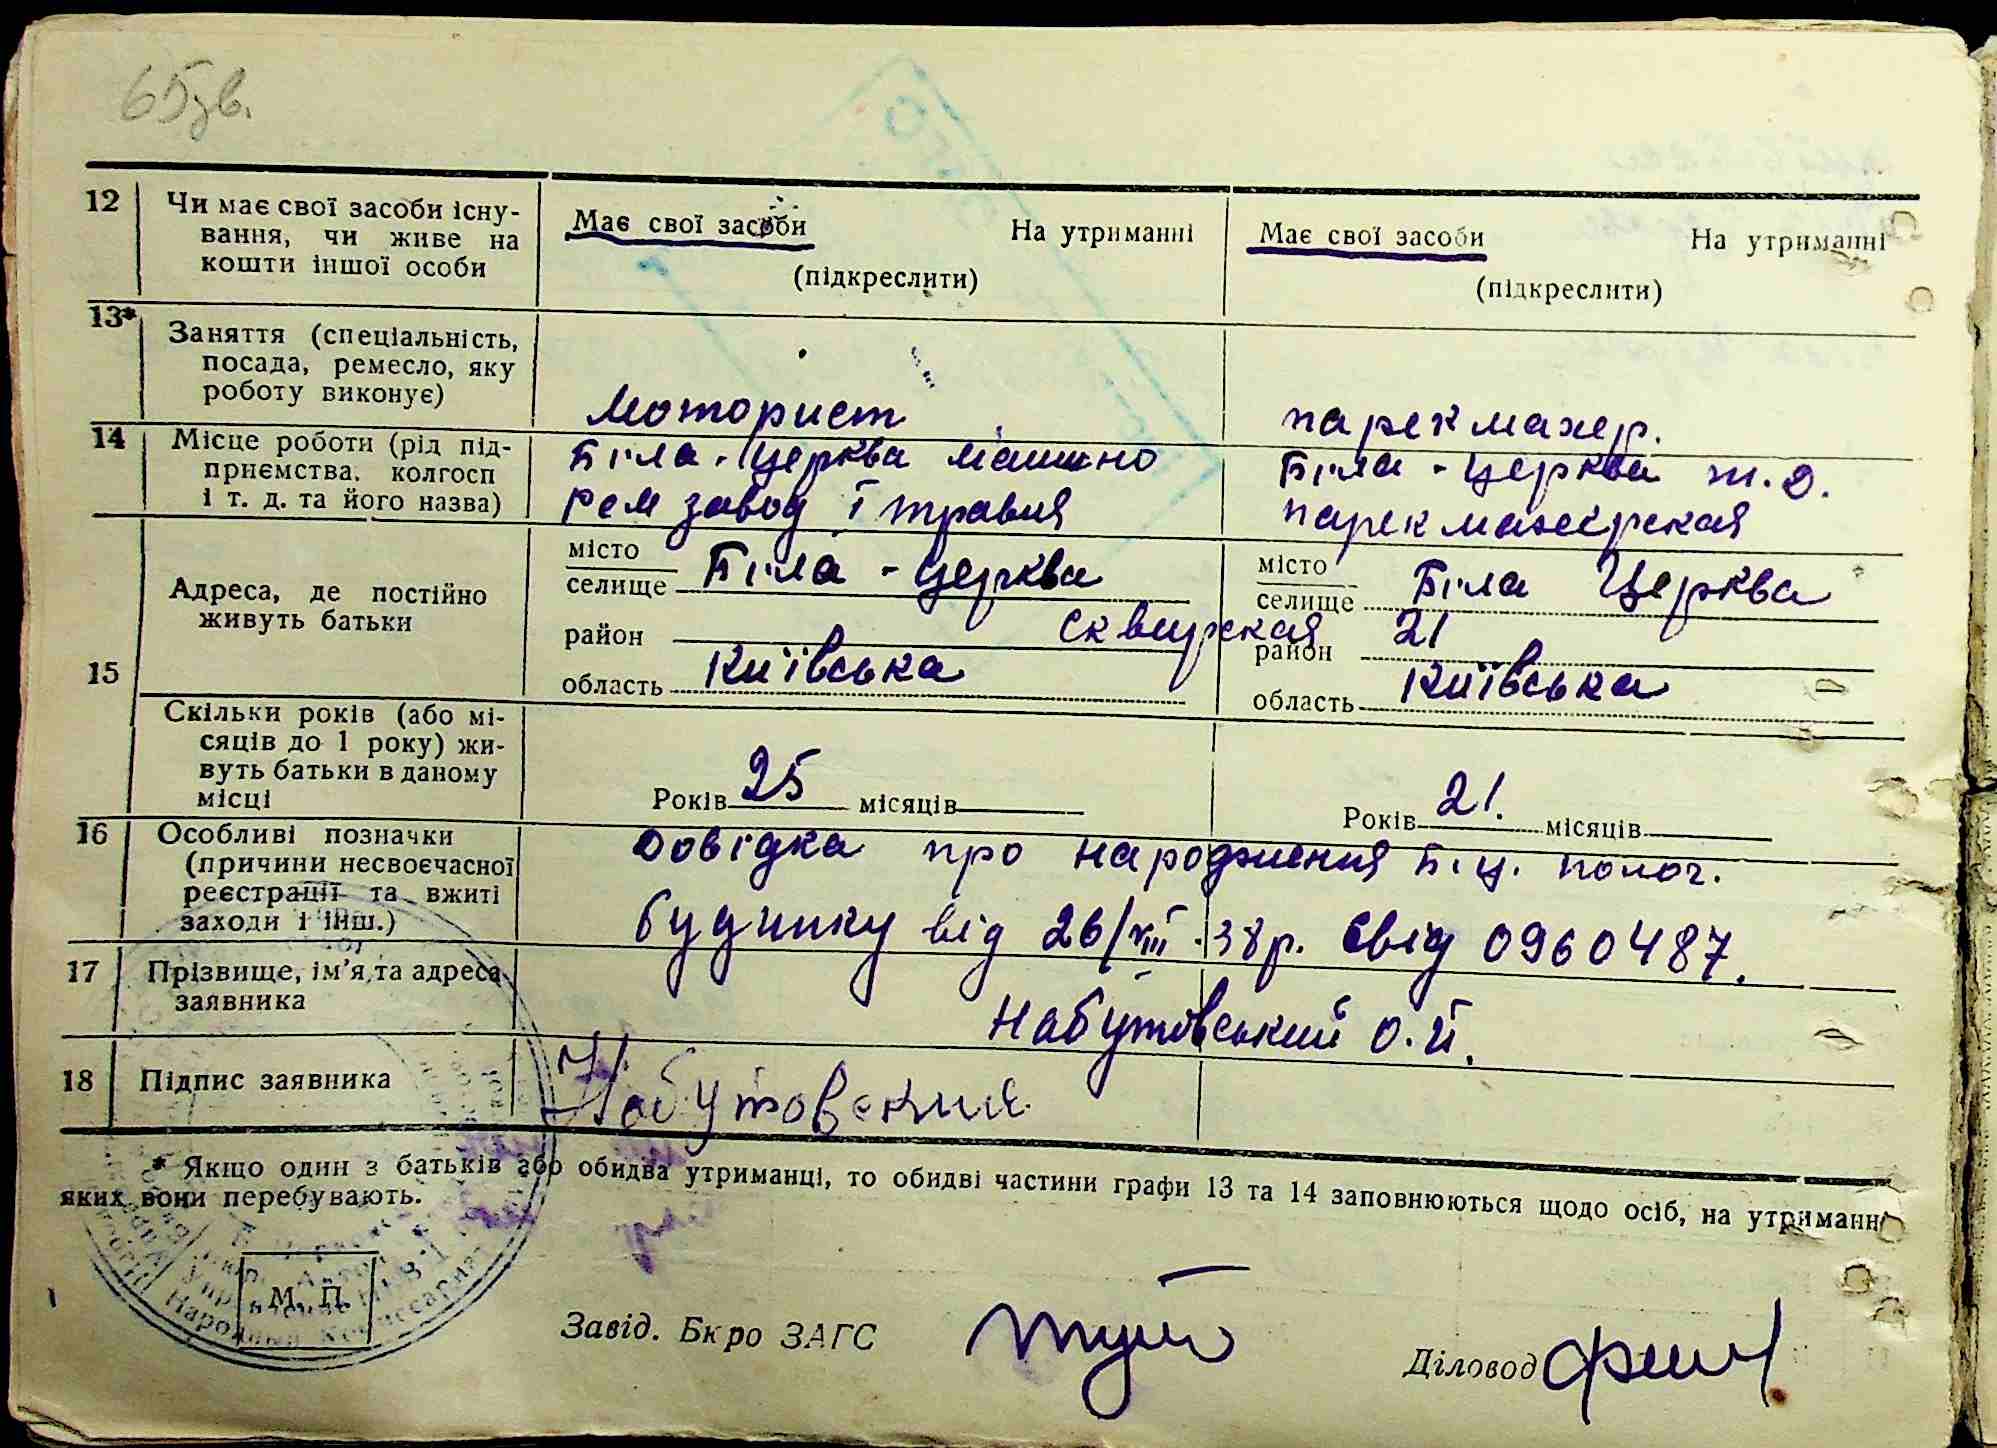 65зв.
12 Чи має свої засоби існу-
вання, чи живе на
кошти іншої особи
Має свої засоби На утриманні
(підкреслити)
Має свої засоби На утриманні
(підкреслити)
13* Заняття (спеціальність,
посада, ремесло, яку
роботу виконує)
Моторист
парекмахер.
14 Місце роботи (рід під-
приємства. колгосп
і т. д. та його назва)
Біла-Церква машино
рем завод 1 травня
Біла-Церква т.д.
парекмахерская
15 Адреса, де постійно
живуть батьки
місто
селище Біла-Церква
район
область Київська
місто
селище Біла Церква
Сквирская 21
район
область Київська
Скільки років (або мі-
сяців до 1 року) жи-
вуть батьки в даному
місці
Років 25 місяців
Років 21. місяців
16 Особливі позначки
(причини несвоєчасної
реєстрації та вжиті
заходи і інш.)
Довідка про народження Б.Ц. полог.
будинку від 26/XII-38р. Свід 0960487.
17 Прізвище, ім'я та адреса
заявника
Набутовський О.Й.
18 Підпис заявника
Набутовский
* Якщо один з батьків або обидва утриманці, то обидві частини графи 13 та 14 заповнюються щодо осіб, на утриманні
яких вони перебувають.
М. П.
Народный Комиссариат
Завід. Бюро ЗАГС
Діловод